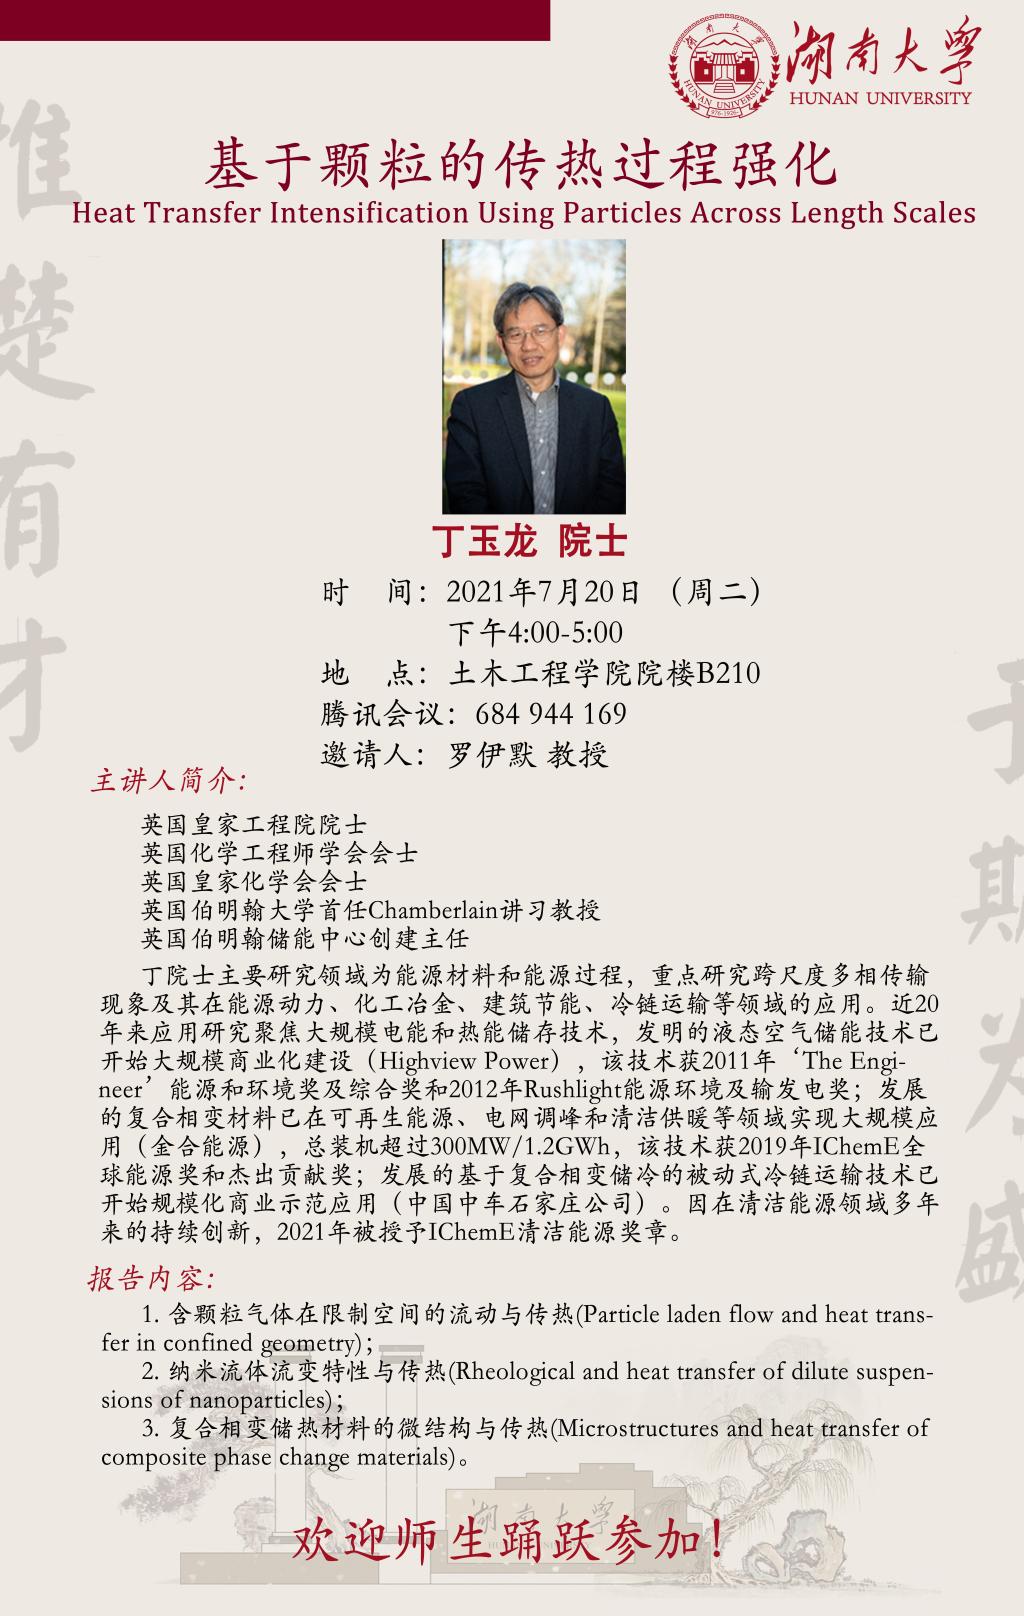 湖南大學
HUNAN UNIVERSITY
湖南大学
HUNAN UNIVERSITY
976-1926
基于颗粒的传热过程强化
Heat Transfer Intensification Using Particles Across Length Scales
惟楚有才
丁玉龙 院士
时 间：2021年7月20日 （周二）
下午4:00-5:00
地 点：土木工程学院院楼B210
腾讯会议：684 944 169
邀请人：罗伊默 教授
于斯为盛
主讲人简介：
英国皇家工程院院士
英国化学工程师学会会士
英国皇家化学会会士
英国伯明翰大学首任Chamberlain讲习教授
英国伯明翰储能中心创建主任
丁院士主要研究领域为能源材料和能源过程，重点研究跨尺度多相传输
现象及其在能源动力、化工冶金、建筑节能、冷链运输等领域的应用。近20
年来应用研究聚焦大规模电能和热能储存技术，发明的液态空气储能技术已
开始大规模商业化建设（Highview Power），该技术获2011年‘The Engi-
neer’能源和环境奖及综合奖和2012年Rushlight能源环境及输发电奖；发展
的复合相变材料已在可再生能源、电网调峰和清洁供暖等领域实现大规模应
用（金合能源），总装机超过300MW/1.2GWh，该技术获2019年IChemE全
球能源奖和杰出贡献奖；发展的基于复合相变储冷的被动式冷链运输技术已
开始规模化商业示范应用（中国中车石家庄公司）。因在清洁能源领域多年
来的持续创新，2021年被授予IChemE清洁能源奖章。
报告内容：
1. 含颗粒气体在限制空间的流动与传热(Particle laden flow and heat trans-
fer in confined geometry)；
2. 纳米流体流变特性与传热(Rheological and heat transfer of dilute suspen-
sions of nanoparticles)；
3. 复合相变储热材料的微结构与传热(Microstructures and heat transfer of
composite phase change materials)。
湖南大学
欢迎师生踊跃参加！